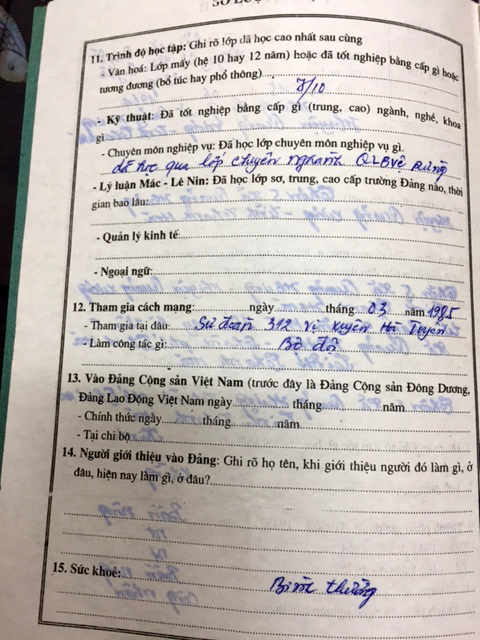 11. Trình độ học tập: Ghi rõ lớp đã học cao nhất sau cùng
- Văn hoá: Lớp mấy (hệ 10 hay 12 năm) hoặc đã tốt nghiệp bằng cấp gì hoặc
tương đương (bổ túc hay phổ thông)
7/10
- Kỹ thuật: Đã tốt nghiệp bằng cấp gì (trung, cao) ngành, nghề, khoa
gì
- Chuyên môn nghiệp vụ: Đã học lớp chuyên môn nghiệp vụ gì.
đã học qua lớp chuyên nghành QLBVệ Rừng
- Lý luận Mác - Lê Nin: Đã học lớp sơ, trung, cao cấp trường Đảng nào, thời
gian bao lâu:
- Quản lý kinh tế
- Ngoại ngữ
12. Tham gia cách mạng: ngày tháng 03 năm 1985
- Tham gia tại đâu Sư đoàn 312 Vị Xuyên Hà Tuyên
- Làm công tác gì: Bộ đội
13. Vào Đảng Cộng sản Việt Nam (trước đây là Đảng Cộng sản Đông Dương,
Đảng Lao Động Việt Nam ngày tháng năm
- Chính thức ngày tháng năm
- Tại chi bộ
14. Người giới thiệu vào Đảng: Ghi rõ họ tên, khi giới thiệu người đó làm gì, ở
đâu, hiện nay làm gì, ở đâu?
15. Sức khoẻ: Bình thường